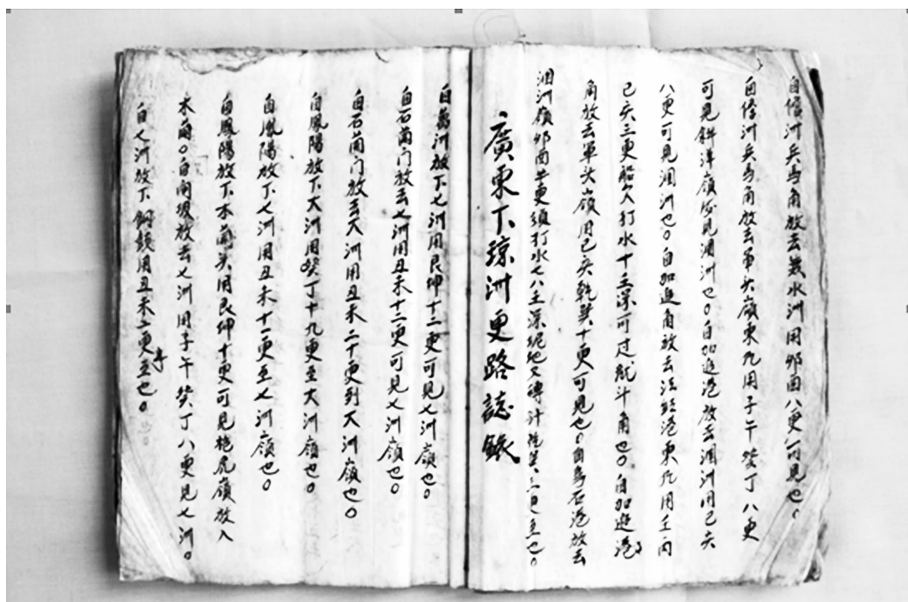 自儋洲兵馬角放去淡水洲用卯酉八更可見也。
自儋洲兵馬角放去軍头嶺東凡用子午癸丁八更
可見餅洋嶺欲見涠洲也。自加進港放去涠洲用己亥
八更可見涠洲也。自加進角放去法頭港東凡用壬丙
己亥三更船欠打水十三深可过龍斗角也。自加進港
角放去軍头嶺用己亥乾巽十更可見也。自烏石港放去
涠洲嶺卯酉半更須打水七八主深泥地
廣東下琼州更路誌錄
自萬洲放下七洲用艮坤十二更可見七洲嶺也。
自石蘭门放去七洲用丑未十二更可見七洲嶺也。
自石蘭门放去大洲用丑未二十更到大洲嶺也。
自鳳陽放下大洲用癸丁十九更至大洲嶺也。
自鳳陽放下七洲用丑未十二更至七洲嶺也。
自鳳陽放下木蘭头用艮坤十更可見抱虎嶺放入
木蘭。自南坡放去七洲用子午癸丁八更見七洲。
自七洲放下銅鼓用丑未二更至也。